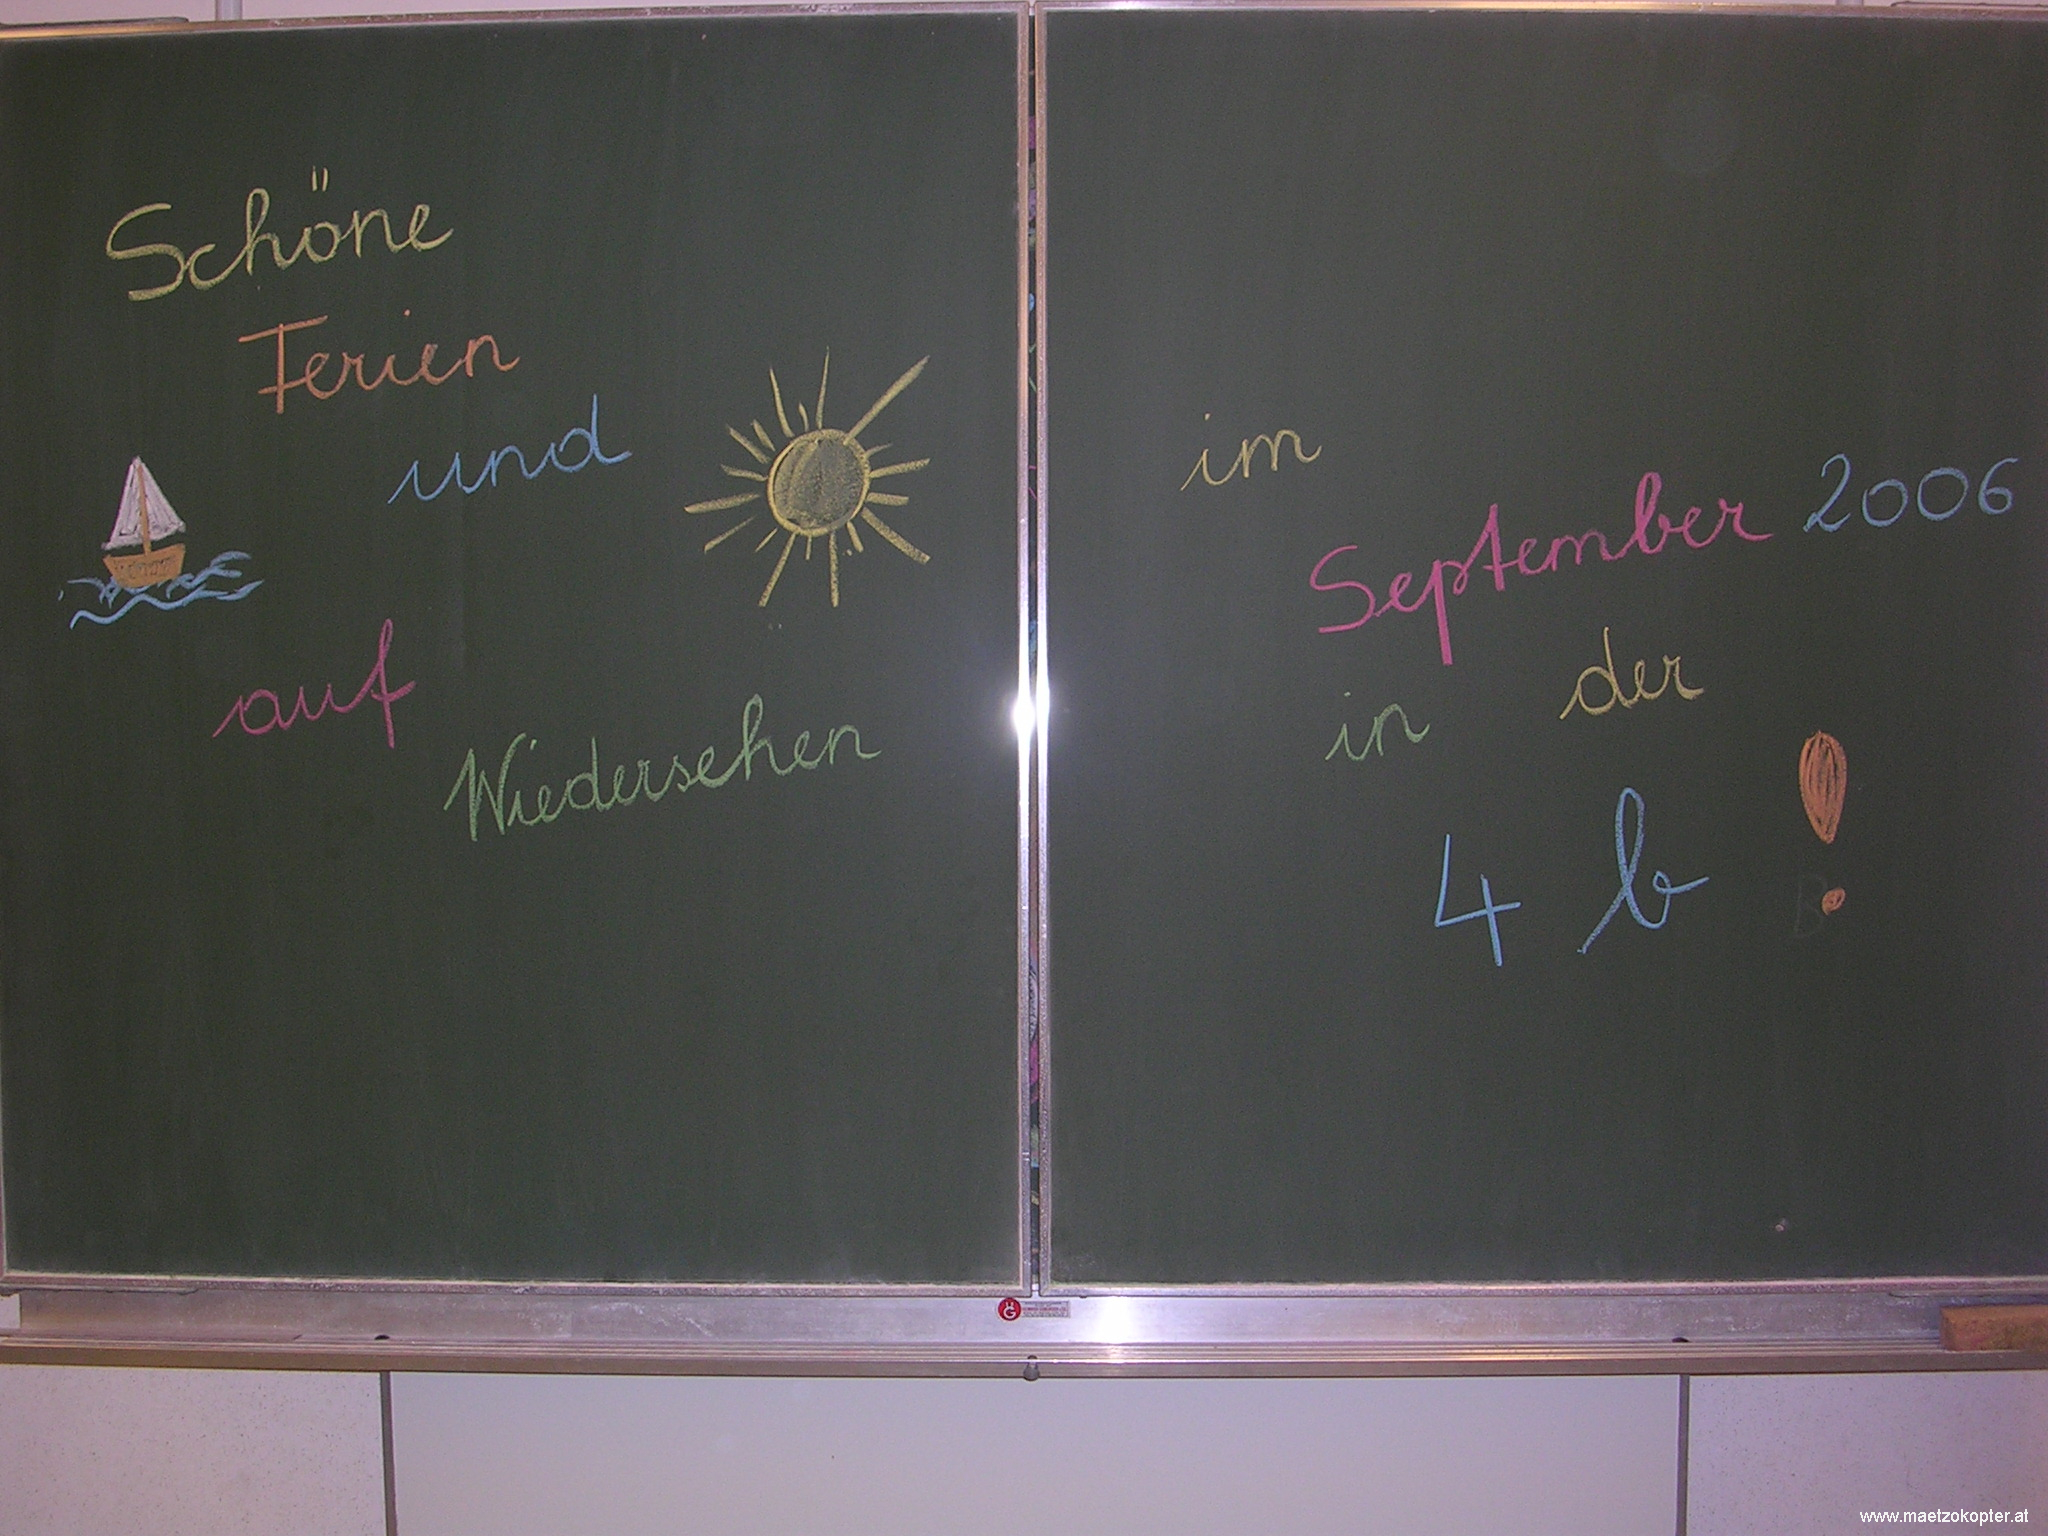 Schöne
Ferien
und
auf
Wiedersehen
im
September 2006
in der
4 b !
www.maetzokopter.at